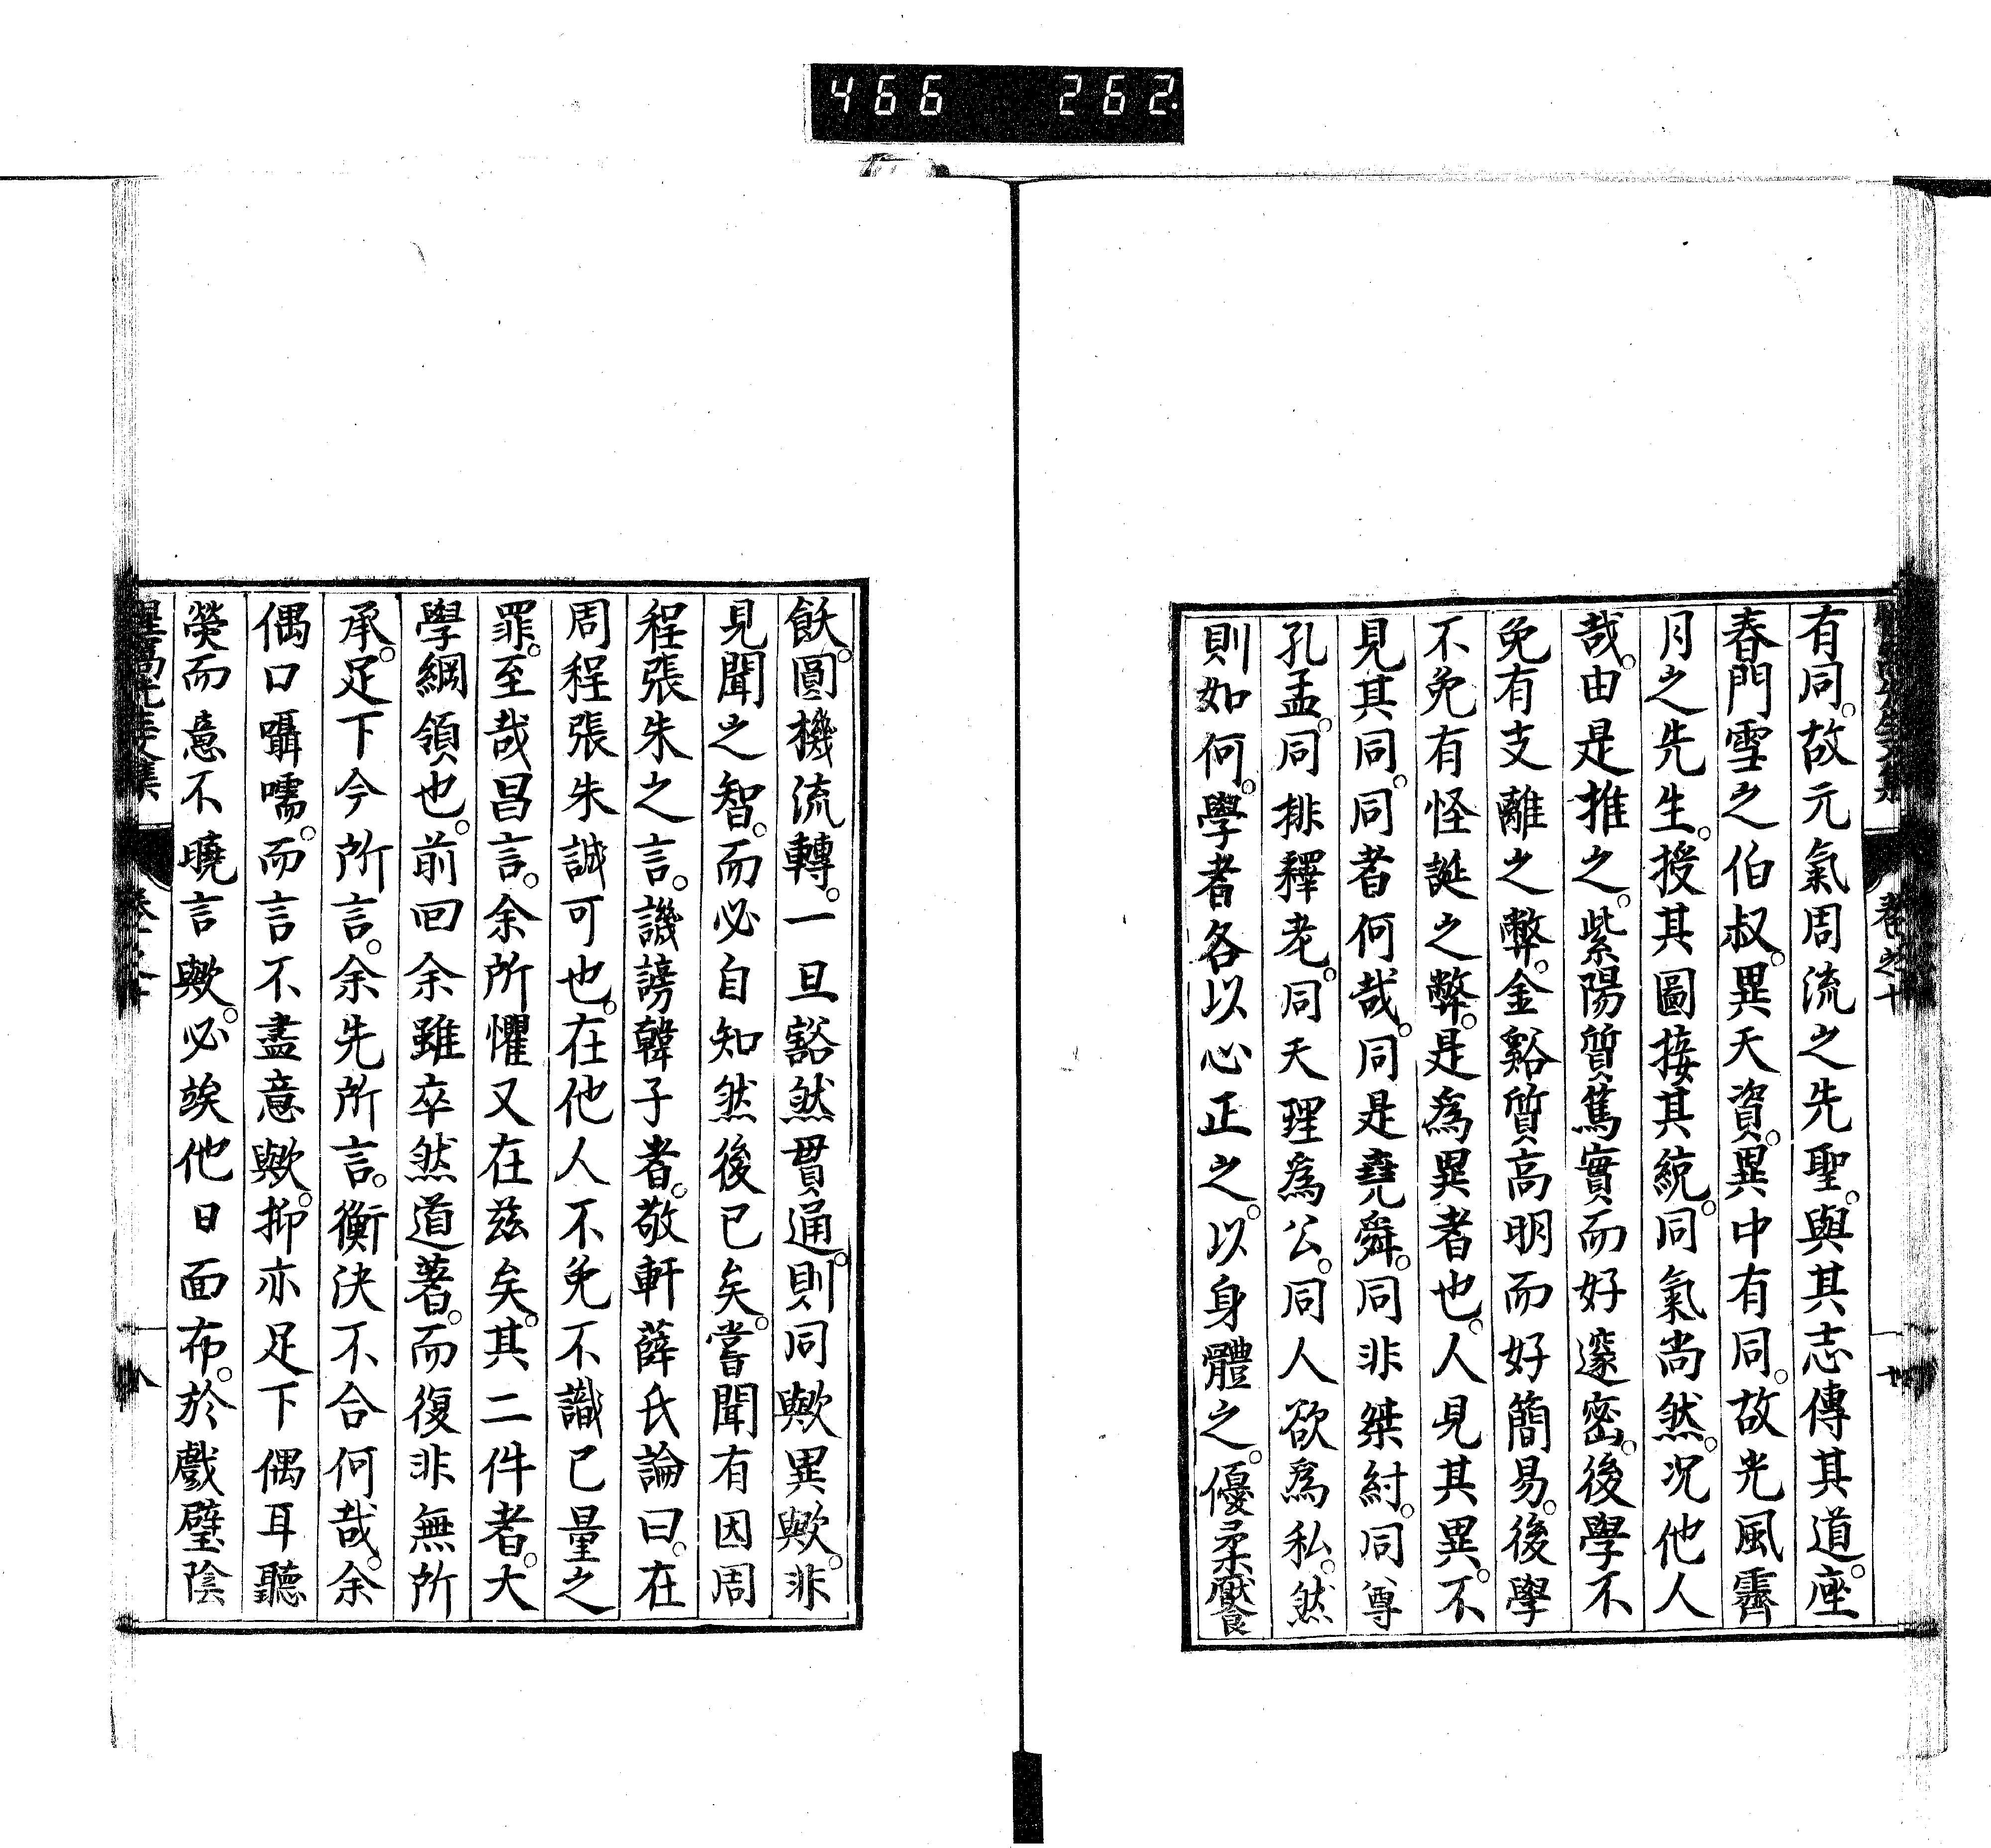 466 262.
有同。故元氣周流之先聖。與其志傳其道。座
春門雪之伯叔。異天資。異中有同。故光風霽
月之先生。授其圖接其統。同氣尚然。况他人
哉。由是推之。紫陽質篤實而好邃密。後學不
免有支離之弊。金谿質高明而好簡易。後學
不免有怪誕之弊。是為異者也。人見其異。不
見其同。同者何哉。同是堯舜。同非桀紂。同尊
孔孟。同排釋老。同天理為公。同人欲為私。然
則如何。學者各以心正之。以身體之。優柔饜
飫。圓機流轉。一旦豁然貫通。則同歟異歟。非
見聞之智。而必自知然後已矣。嘗聞有因周
程張朱之言。譏謗韓子者。敬軒薛氏論曰。在
周程張朱誠可也。在他人不免不識已量之
罪。至哉昌言。余所懼又在茲矣。其二件者。大
學綱領也。前回余雖卒然道著。而復非無所
承。足下今所言。余先所言。衡決不合何哉。余
偶口囁嚅。而言不盡意歟。抑亦足下偶耳聽
熒而意不曉言歟。必竢他日面布。於戲璧陰